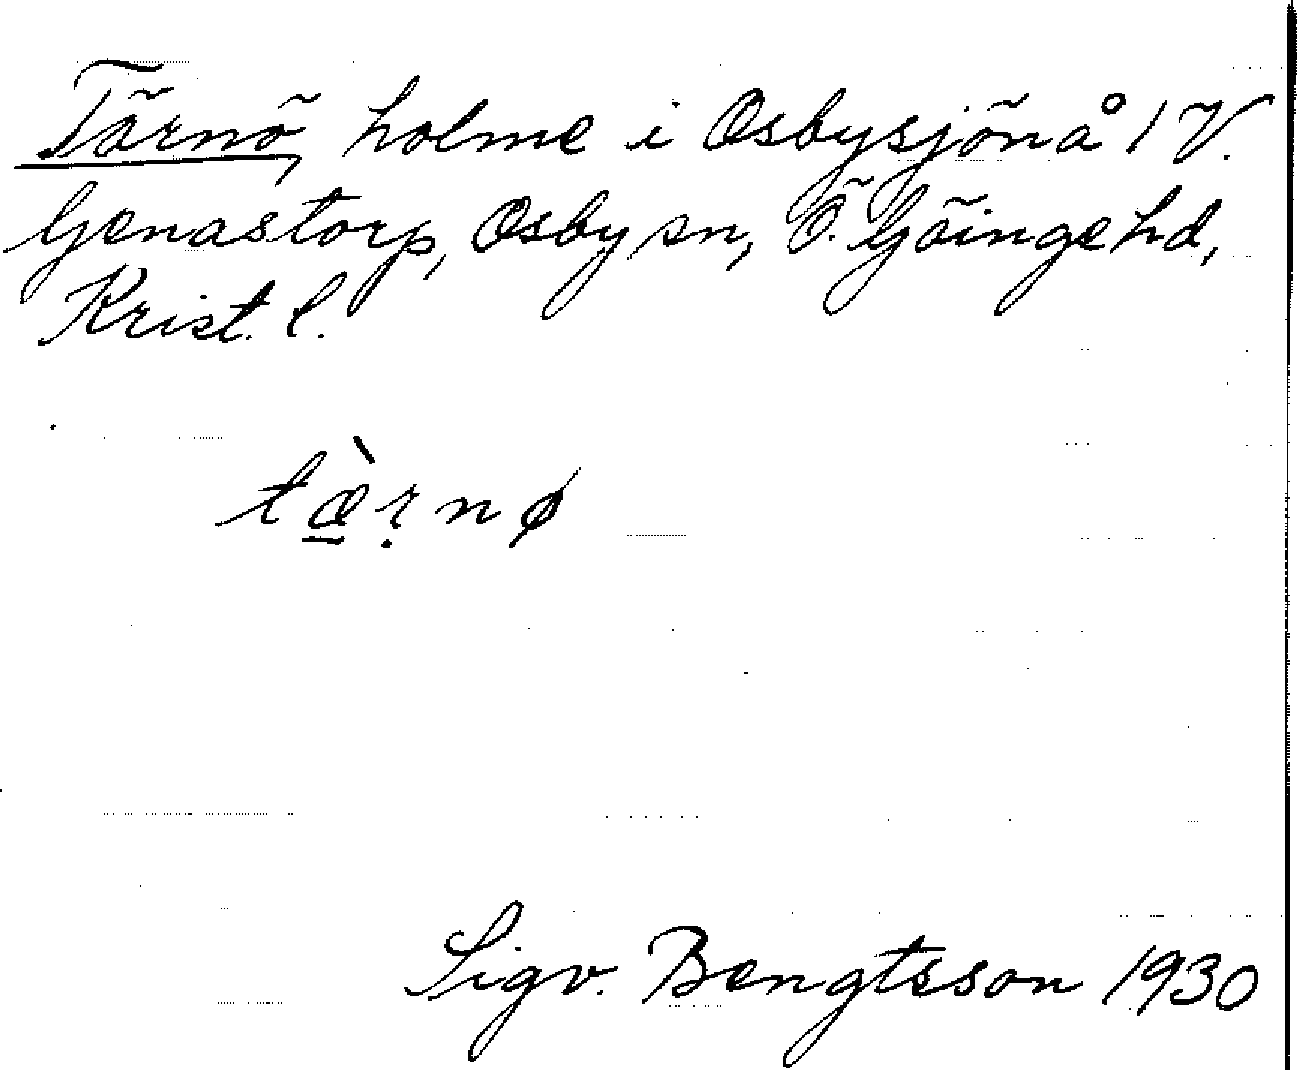 Tärnö, holme i Osbysjön å 1 V.
Genastorp, Osby sn, Ö. Göinge hd,
Krist. l.
tæ̱̀ṛnø
Sigv. Bengtsson 1930